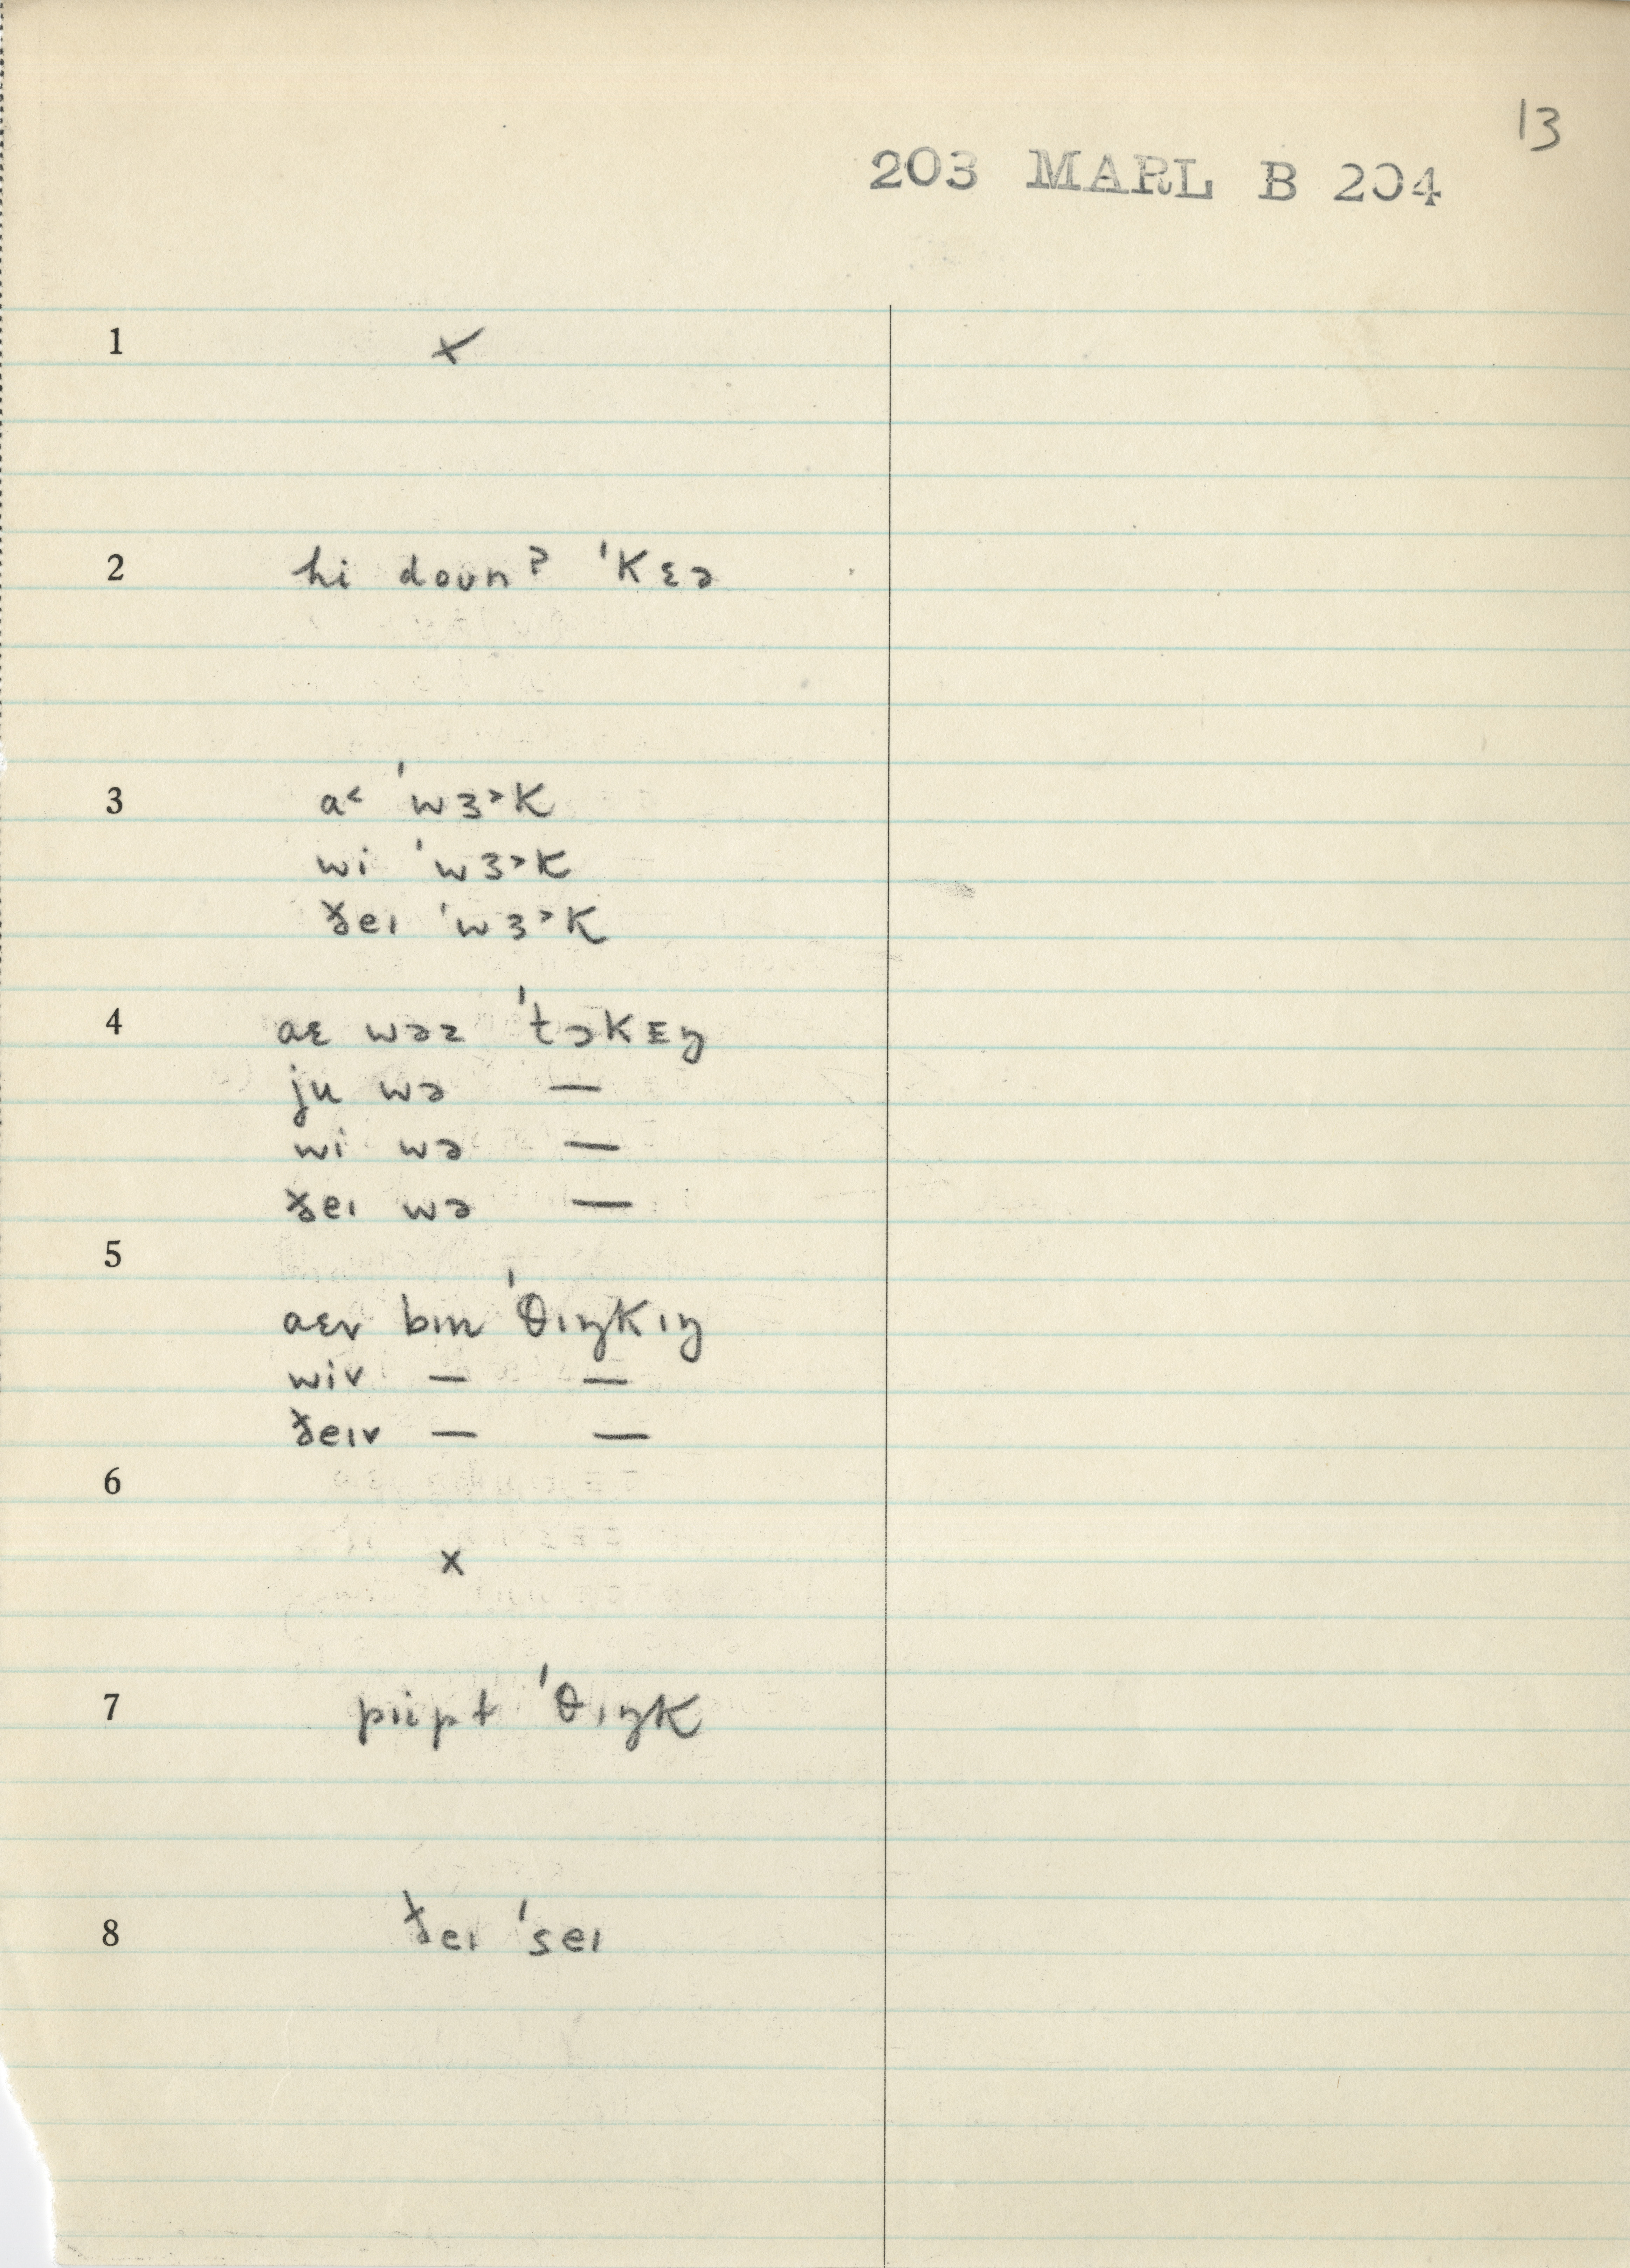 13
203 MARL B 204
1 x
2 hi doʊnˀ ˈkɛə
3 a˂ ˈwɜ˃k
wi ˈwɜ˃k
ðeɪ ˈwɜ˃k
4 aɛ wəz ˈtɔkɪŋ
ju wə —
wi wə —
ðeɪ wə —
5
aɛv bɪn ˈθɪŋkɪŋ
wiv — —
ðeɪv — —
6
x
7 piipt ˈθɪŋk
8 ðeɪ ˈseɪ